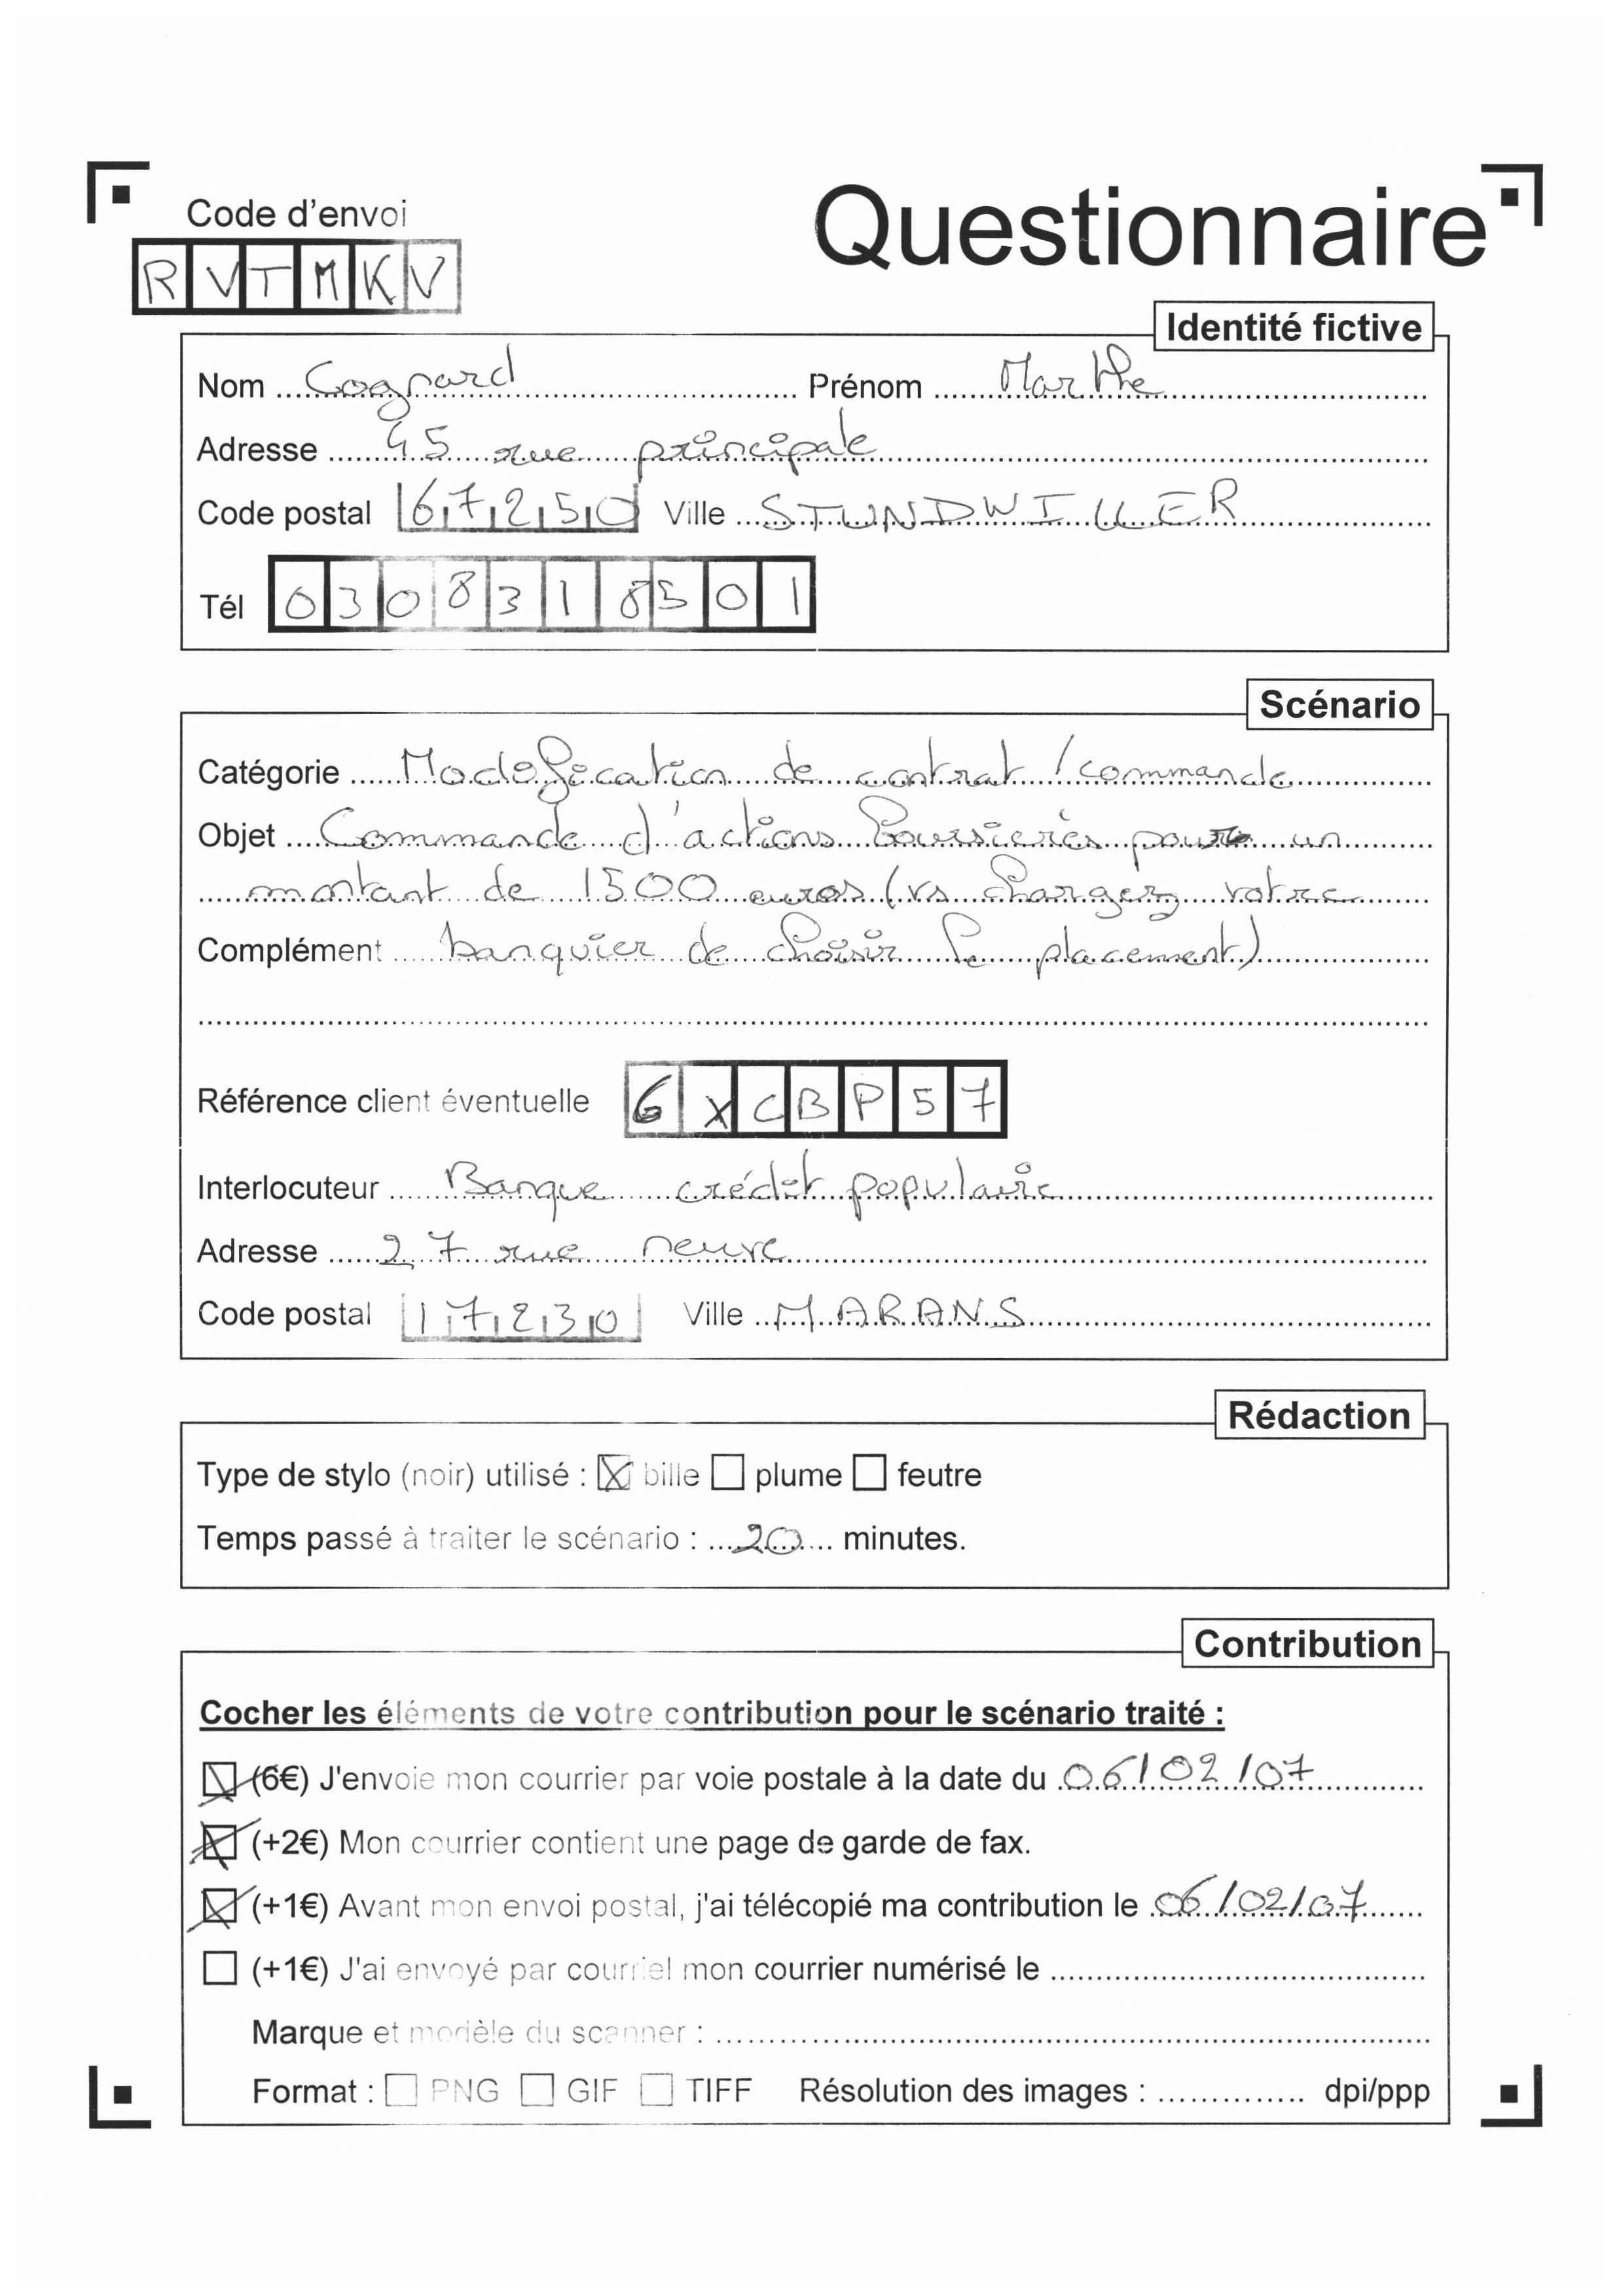 Code d'envoi
Questionnaire
RVTMKV
Identité fictive
Nom Cognard Prénom Marthe
Adresse 45 rue principale
Code postal 67250 Ville STUNDWILLER
Tél 0308318501
Scénario
Catégorie Modification de contrat / commande
Objet Commande d'actions boursières pour un
montant de 1500 euros (vs chargez votre
Complément banquier de choisir le placement)
Référence client éventuelle 6XCBP57
Interlocuteur Banque crédit populaire
Adresse 27 rue neuve
Code postal 17230 Ville MARANS
Rédaction
Type de stylo (noir) utilisé : bille plume feutre
Temps passé à traiter le scénario : 20 minutes.
Contribution
Cocher les éléments de votre contribution pour le scénario traité :
(6€) J'envoie mon courrier par voie postale à la date du 06/02/07
(+2€) Mon courrier contient une page de garde de fax.
(+1€) Avant mon envoi postal, j'ai télécopié ma contribution le 06/02/07
(+1€) J'ai envoyé par courriel mon courrier numérisé le
Marque et modèle du scanner :
Format : PNG GIF TIFF Résolution des images : dpi/ppp